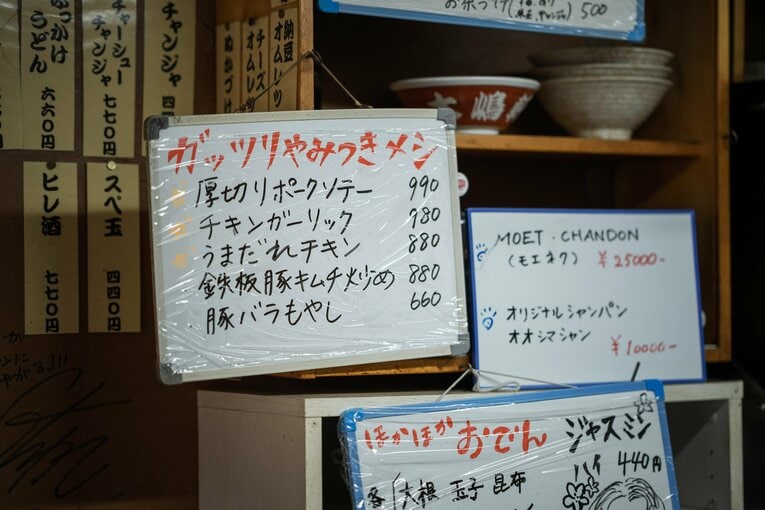 ぶっかけ
うどん
六六〇円
チャーシュー
チャンジャ
七七〇円
チャンジャ
ヒレ酒
七七〇円
スペ玉
四四〇円
ぬかづけ
チーズ
オムレツ
納豆
オムレツ
お茶づけ
500
ガッツリやみつきメシ
厚切りポークソテー 990
チキンガーリック 980
うまだれチキン 880
鉄板豚キムチ炒め 880
豚バラもやし 660
MOET・CHANDON
(モエネク) ¥25000-
オリジナルシャンパン
オオシマシャン
¥10000-
ほかほかおでん
各 大根 玉子 昆布
ジャスミン
ハイ 440円